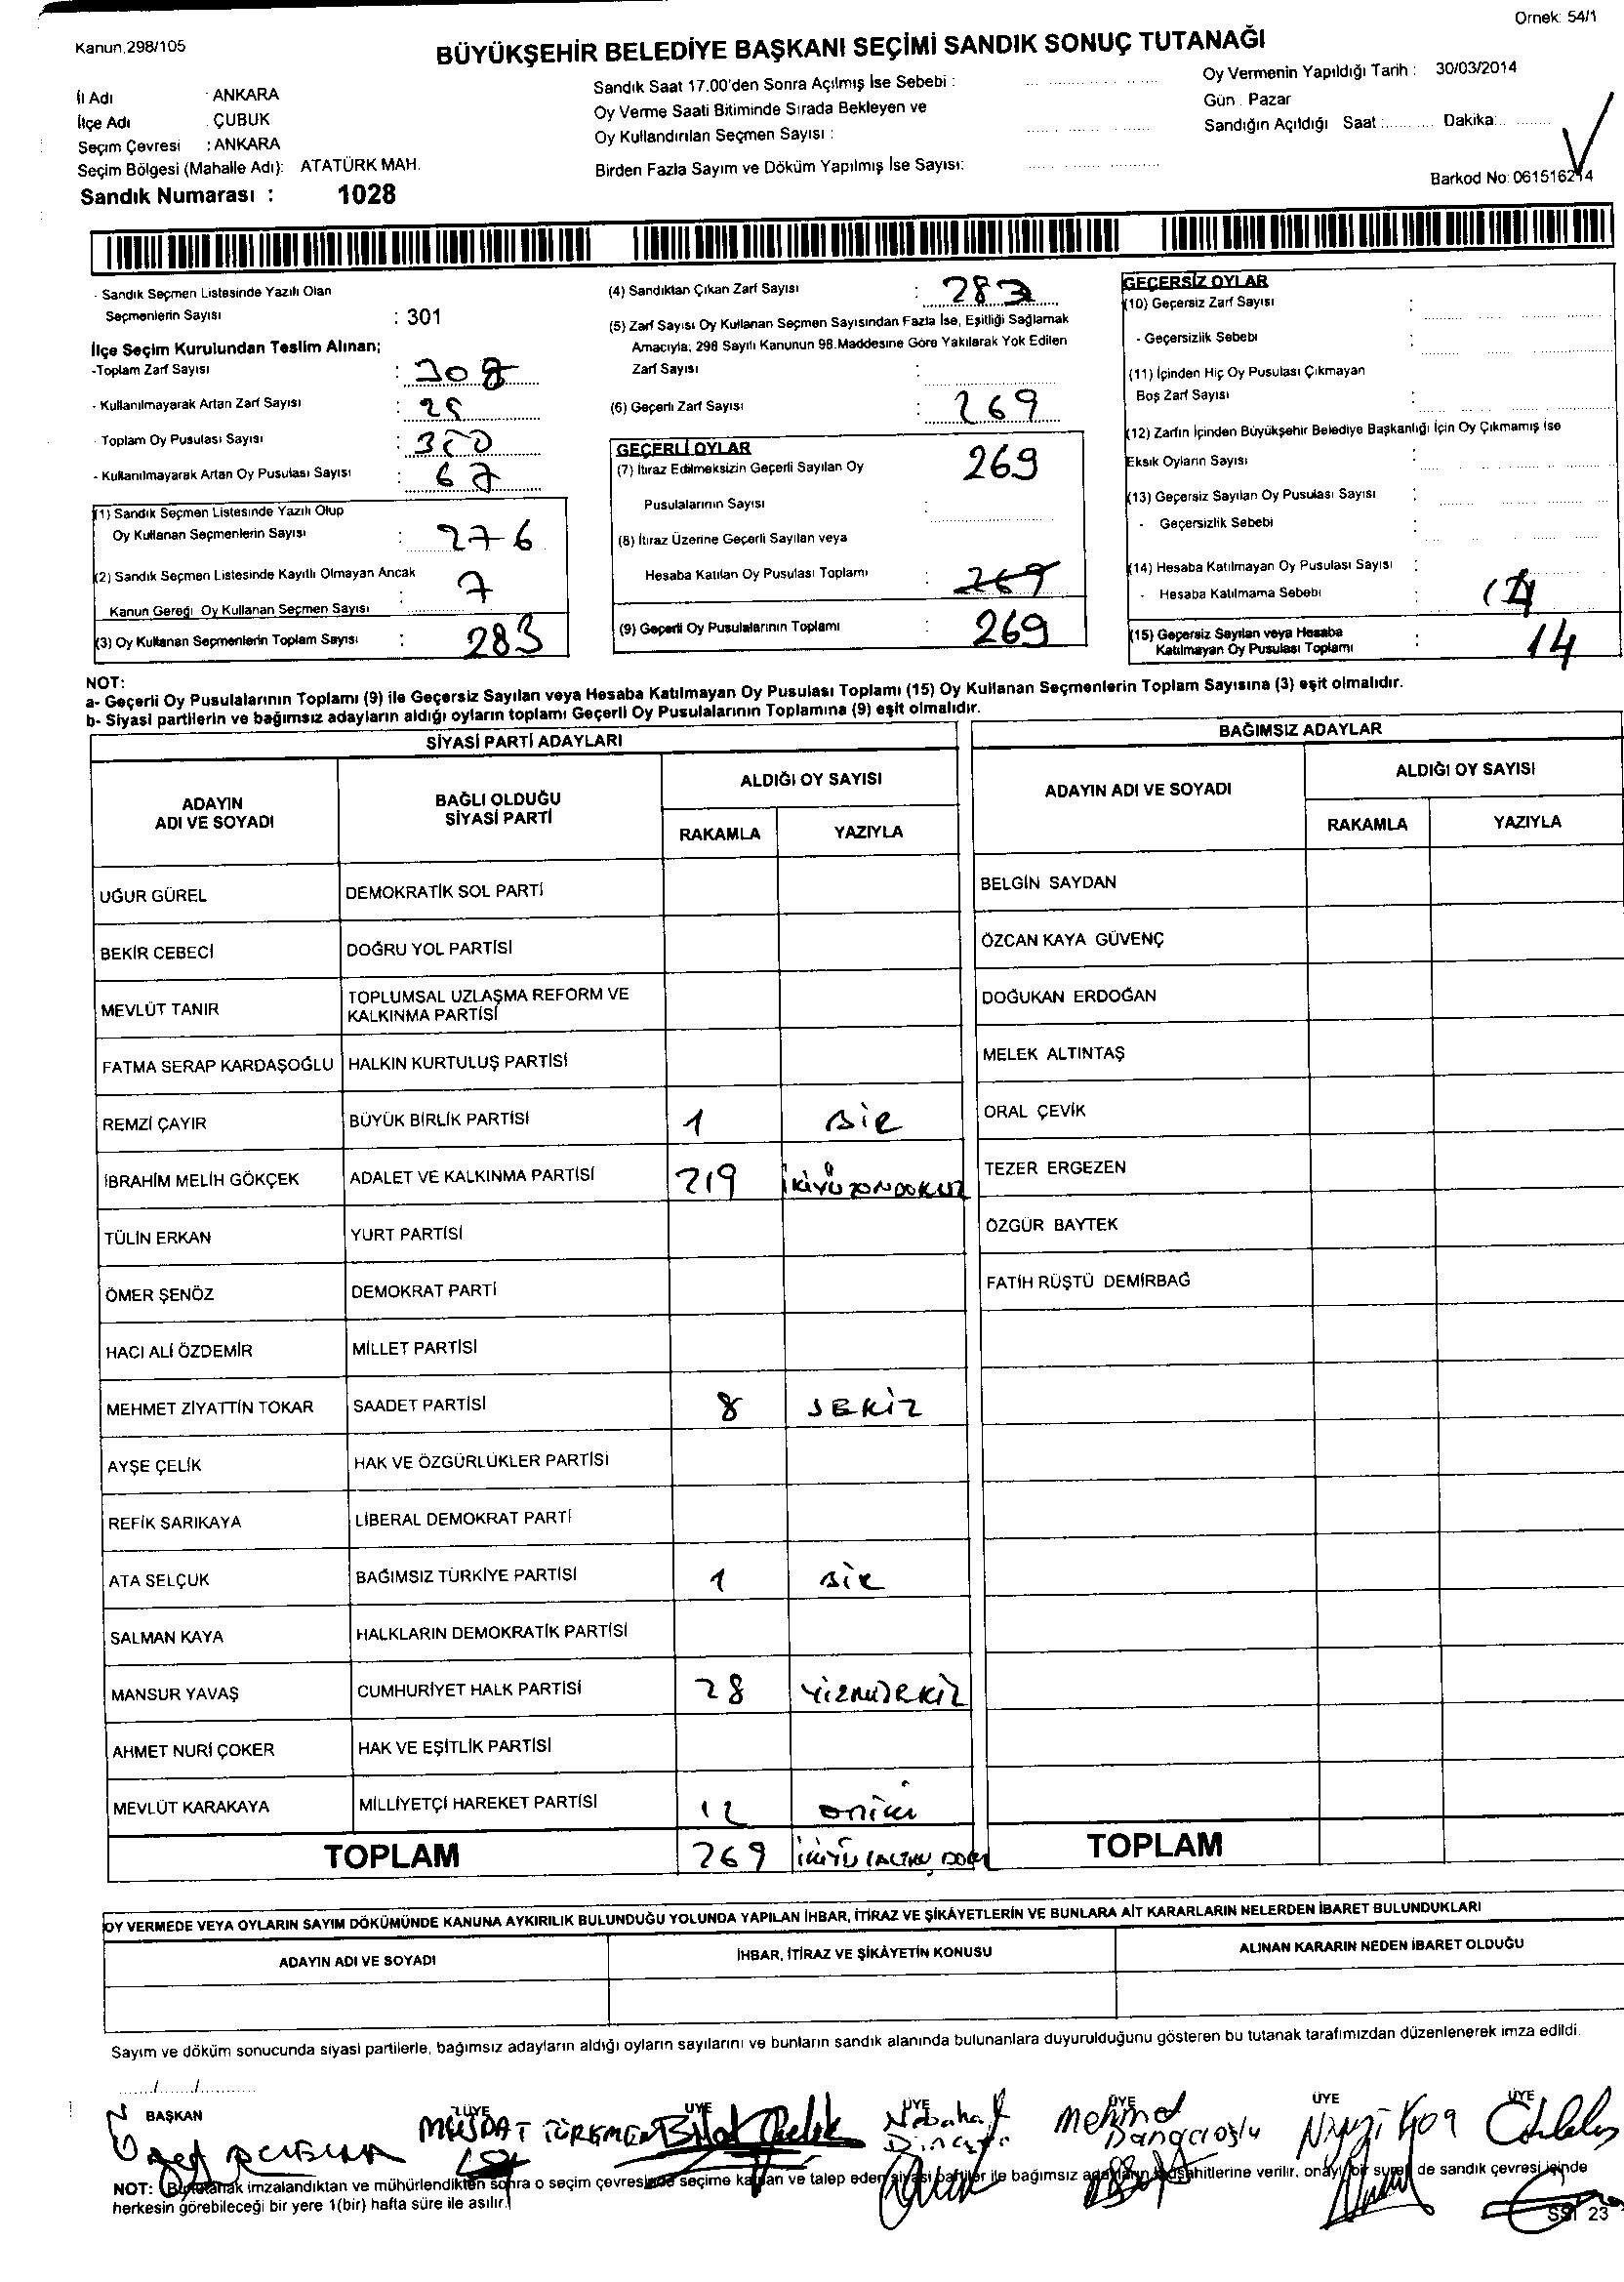 Örnek: 54/1
Kanun,298/105
BÜYÜKŞEHİR BELEDİYE BAŞKANI SEÇİMİ SANDIK SONUÇ TUTANAĞI
İl Adı : ANKARA
İlçe Adı : ÇUBUK
Seçim Çevresi : ANKARA
Seçim Bölgesi (Mahalle Adı): ATATÜRK MAH.
Sandık Numarası : 1028
Sandık Saat 17.00'den Sonra Açılmış İse Sebebi :
Oy Verme Saati Bitiminde Sırada Bekleyen ve
Oy Kullandırılan Seçmen Sayısı :
Birden Fazla Sayım ve Döküm Yapılmış İse Sayısı:
Oy Vermenin Yapıldığı Tarih : 30/03/2014
Gün : Pazar
Sandığın Açıldığı Saat : Dakika:
Barkod No: 061516214
- Sandık Seçmen Listesinde Yazılı Olan
Seçmenlerin Sayısı : 301
İlçe Seçim Kurulundan Teslim Alınan;
-Toplam Zarf Sayısı : 308
- Kullanılmayarak Artan Zarf Sayısı : 25
- Toplam Oy Pusulası Sayısı : 350
- Kullanılmayarak Artan Oy Pusulası Sayısı : 67
(1) Sandık Seçmen Listesinde Yazılı Olup
Oy Kullanan Seçmenlerin Sayısı : 276
(2) Sandık Seçmen Listesinde Kayıtlı Olmayan Ancak
Kanun Gereği Oy Kullanan Seçmen Sayısı : 7
(3) Oy Kullanan Seçmenlerin Toplam Sayısı : 283
(4) Sandıktan Çıkan Zarf Sayısı : 283
(5) Zarf Sayısı Oy Kullanan Seçmen Sayısından Fazla İse, Eşitliği Sağlamak
Amacıyla; 298 Sayılı Kanunun 98.Maddesine Göre Yakılarak Yok Edilen
Zarf Sayısı :
(6) Geçerli Zarf Sayısı : 269
GEÇERLİ OYLAR
(7) İtiraz Edilmeksizin Geçerli Sayılan Oy 269
Pusulalarının Sayısı :
(8) İtiraz Üzerine Geçerli Sayılan veya
Hesaba Katılan Oy Pusulası Toplamı : 269
(9) Geçerli Oy Pusulalarının Toplamı : 269
GEÇERSİZ OYLAR
(10) Geçersiz Zarf Sayısı :
- Geçersizlik Sebebi :
(11) İçinden Hiç Oy Pusulası Çıkmayan
Boş Zarf Sayısı :
(12) Zarfın İçinden Büyükşehir Belediye Başkanlığı İçin Oy Çıkmamış İse
Eksik Oyların Sayısı :
(13) Geçersiz Sayılan Oy Pusulası Sayısı :
- Geçersizlik Sebebi :
(14) Hesaba Katılmayan Oy Pusulası Sayısı :
- Hesaba Katılmama Sebebi :
(15) Geçersiz Sayılan veya Hesaba
Katılmayan Oy Pusulası Toplamı : 14
NOT:
a- Geçerli Oy Pusulalarının Toplamı (9) ile Geçersiz Sayılan veya Hesaba Katılmayan Oy Pusulası Toplamı (15) Oy Kullanan Seçmenlerin Toplam Sayısına (3) eşit olmalıdır.
b- Siyasi partilerin ve bağımsız adayların aldığı oyların toplamı Geçerli Oy Pusulalarının Toplamına (9) eşit olmalıdır.
SİYASİ PARTİ ADAYLARI
ADAYIN ADI VE SOYADI BAĞLI OLDUĞU SİYASİ PARTİ ALDIĞI OY SAYISI
RAKAMLA YAZIYLA
UĞUR GÜREL DEMOKRATİK SOL PARTİ
BEKİR CEBECİ DOĞRU YOL PARTİSİ
MEVLÜT TANIR TOPLUMSAL UZLAŞMA REFORM VE KALKINMA PARTİSİ
FATMA SERAP KARDAŞOĞLU HALKIN KURTULUŞ PARTİSİ
REMZİ ÇAYIR BÜYÜK BİRLİK PARTİSİ 1 BİR
İBRAHİM MELİH GÖKÇEK ADALET VE KALKINMA PARTİSİ 219 İKİYÜZONDOKUZ
TÜLİN ERKAN YURT PARTİSİ
ÖMER ŞENÖZ DEMOKRAT PARTİ
HACI ALİ ÖZDEMİR MİLLET PARTİSİ
MEHMET ZİYATTİN TOKAR SAADET PARTİSİ 8 SEKİZ
AYŞE ÇELİK HAK VE ÖZGÜRLÜKLER PARTİSİ
REFİK SARIKAYA LİBERAL DEMOKRAT PARTİ
ATA SELÇUK BAĞIMSIZ TÜRKİYE PARTİSİ 1 BİR
SALMAN KAYA HALKLARIN DEMOKRATİK PARTİSİ
MANSUR YAVAŞ CUMHURİYET HALK PARTİSİ 28 YİRMİSEKİZ
AHMET NURİ ÇOKER HAK VE EŞİTLİK PARTİSİ
MEVLÜT KARAKAYA MİLLİYETÇİ HAREKET PARTİSİ 12 oniki
TOPLAM 269
BAĞIMSIZ ADAYLAR
ADAYIN ADI VE SOYADI ALDIĞI OY SAYISI
RAKAMLA YAZIYLA
BELGİN SAYDAN
ÖZCAN KAYA GÜVENÇ
DOĞUKAN ERDOĞAN
MELEK ALTINTAŞ
ORAL ÇEVİK
TEZER ERGEZEN
ÖZGÜR BAYTEK
FATİH RÜŞTÜ DEMİRBAĞ
TOPLAM
OY VERMEDE VEYA OYLARIN SAYIM DÖKÜMÜNDE KANUNA AYKIRILIK BULUNDUĞU YOLUNDA YAPILAN İHBAR, İTİRAZ VE ŞİKÂYETLERİN VE BUNLARA AİT KARARLARIN NELERDEN İBARET BULUNDUKLARI
ADAYIN ADI VE SOYADI İHBAR, İTİRAZ VE ŞİKÂYETİN KONUSU ALINAN KARARIN NEDEN İBARET OLDUĞU
Sayım ve döküm sonucunda siyasi partilerle, bağımsız adayların aldığı oyların sayılarını ve bunların sandık alanında bulunanlara duyurulduğunu gösteren bu tutanak tarafımızdan düzenlenerek imza edildi.
....../....../............
BAŞKAN ÜYE ÜYE ÜYE ÜYE ÜYE ÜYE
TÜRKMEN Mehmet
NOT: Bu tutanak imzalandıktan ve mühürlendikten sonra o seçim çevresinde seçime katılan ve talep eden siyasi partiler ile bağımsız adayların müşahitlerine verilir, onaylı bir sureti de sandık çevresi içinde
herkesin görebileceği bir yere 1(bir) hafta süre ile asılır.
SSI 23